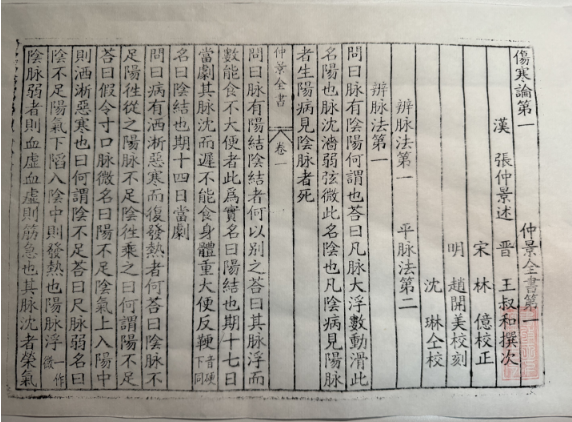 傷寒論第一 仲景全書第一
漢 張仲景述 晉 王叔和撰次
宋 林 億校正
明 趙開美校刻
沈 琳仝校
辨脉法第一 平脉法第二
辨脉法第一
問曰脉有陰陽何謂也答曰凡脉大浮數動滑此
名陽也脉沈濇弱弦微此名陰也凡陰病見陽脉
者生陽病見陰脉者死
仲景全書 卷一
問曰脉有陽結陰結者何以別之答曰其脉浮而
數能食不大便者此爲實名曰陽結也期十七日
當劇其脉沈而遲不能食身體重大便反鞕音硬下同
名曰陰結也期十四日當劇
問曰病有洒淅惡寒而復發熱者何答曰陰脉不
足陽往從之陽脉不足陰往乘之曰何謂陽不足
答曰假令寸口脉微名曰陽不足陰氣上入陽中
則洒淅惡寒也曰何謂陰不足答曰尺脉弱名曰
陰不足陽氣下陷入陰中則發熱也陽脉浮一作微
陰脉弱者則血虛血虛則筋急也其脉沈者榮氣